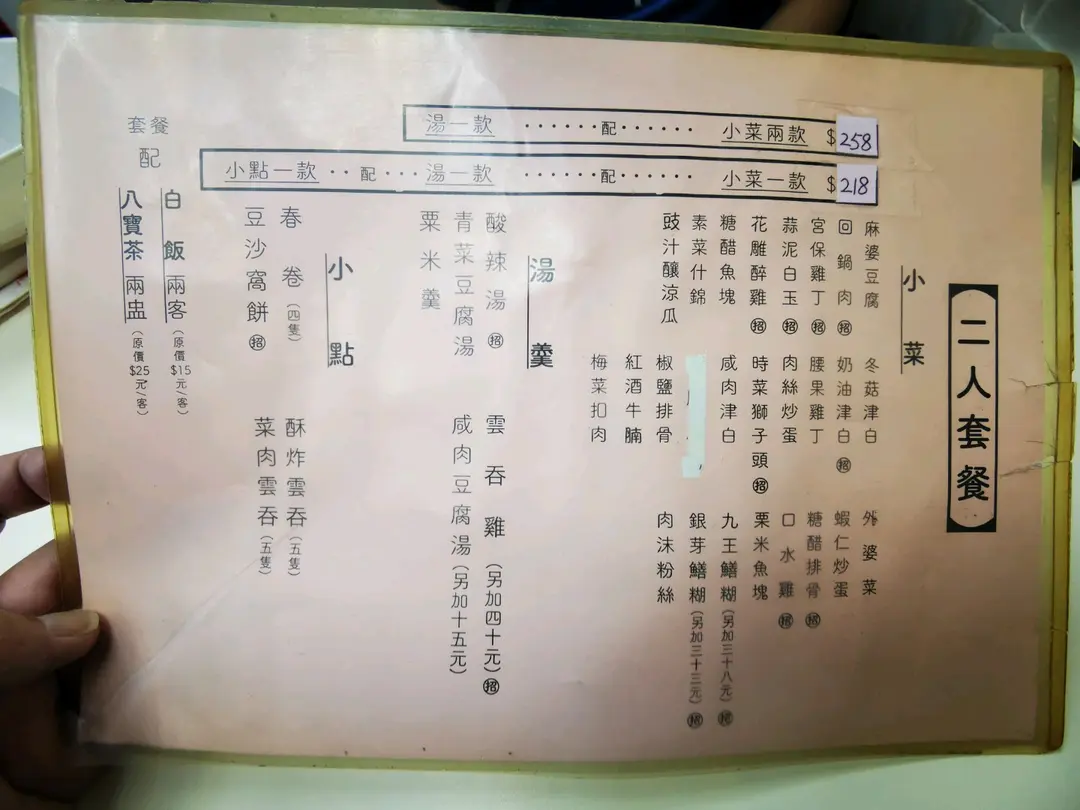 二人套餐
小菜兩款······配·······湯一款 $258
小菜一款······配·······湯一款···配··小點一款 $218
小菜
麻婆豆腐
回鍋肉㊙
宮保雞丁㊙
蒜泥白玉㊙
花雕醉雞㊙
糖醋魚塊
素菜什錦
豉汁釀涼瓜
冬菇津白
奶油津白㊙
腰果雞丁
肉絲炒蛋
時菜獅子頭㊙
咸肉津白
椒鹽排骨
紅酒牛腩
梅菜扣肉
外婆菜
蝦仁炒蛋
糖醋排骨㊙
口水雞㊙
粟米魚塊
九王鱔糊(另加三十八元)㊙
銀芽鱔糊(另加三十三元)㊙
肉沫粉絲
湯羹
酸辣湯㊙
青菜豆腐湯
粟米羹
雲吞雞(另加四十元)㊙
咸肉豆腐湯(另加十五元)
小點
春卷(四隻)
豆沙窩餅㊙
酥炸雲吞(五隻)
菜肉雲吞(五隻)
套餐
配
白飯兩客(原價$15元/客)
八寶茶兩盅(原價$25元/客)